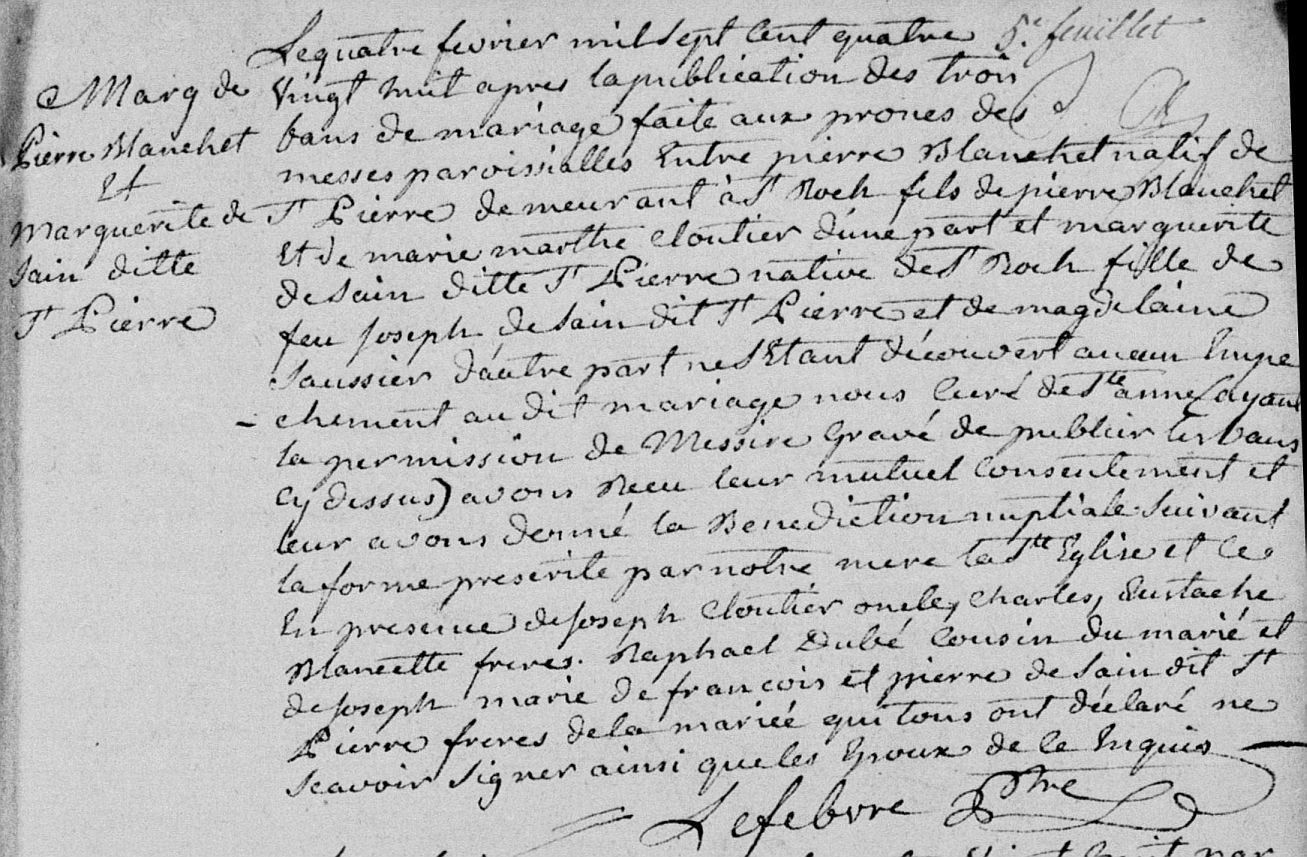 5e. feuillet
Marg de
Pierre Blanchet
Et
Marguerite de
Sain ditte
St Pierre
Le quatre fevrier mil sept Cent quatre
Vingt huit apres la publication des trois
bans de mariage faite aux prones des
messes paroissialles Entre pierre Blanchet natif de
St Pierre demeurant à St Roch fils de pierre Blanchet
Et de marie marthe Cloutier d'une part et marguerite
de Sain ditte St Pierre native de St Roch fille de
feu Joseph de Sain dit St Pierre et de magdelaine
Saussier d'autre part ne S'Etant découvert aucun Empe
- chement au dit mariage nous Curé de Ste anne (ayant
la permission de Messire Gravé de publier les bans
Cy dessus) avons Recu leur mutuel Consentement et
leur avons donné la Benediction nuptiale Suivant
la forme prescrite par notre mere la Ste Eglise et Ce
En presence de Joseph Cloutier oncle, Charles, Eustache
Blancette freres. Raphael Dubé Cousin du marié et
de Joseph marie de francois et pierre de Sain dit St
Pierre freres de la mariée qui tous ont déclaré ne
Scavoir Signer ainsi que les Epoux de ce Enquis
Lefebvre Ptre